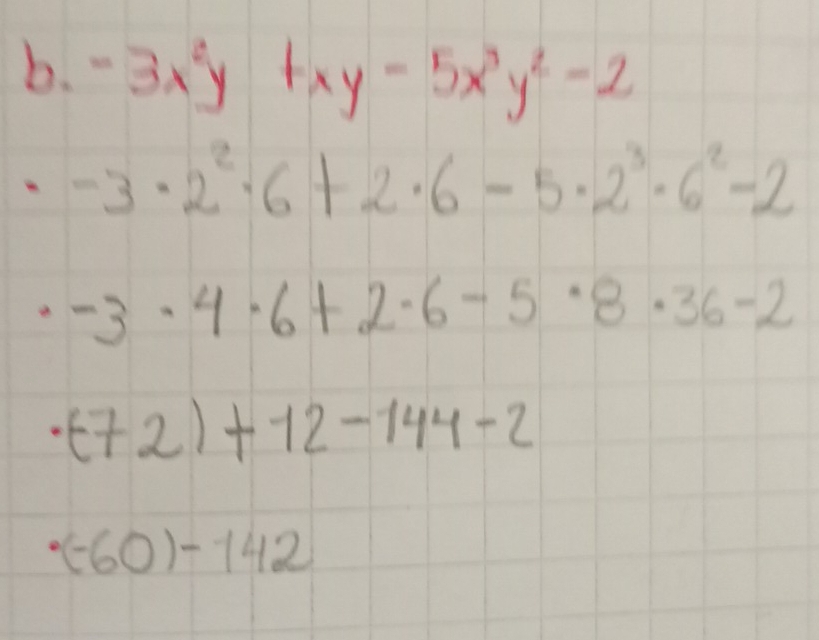 b. -3x²y +xy - 5x³y² - 2
· -3 · 2² · 6 + 2 · 6 - 5 · 2³ · 6² - 2
· -3 · 4 · 6 + 2 · 6 - 5 · 8 · 36 - 2
· (-72) + 12 - 144 - 2
· (-60) - 142